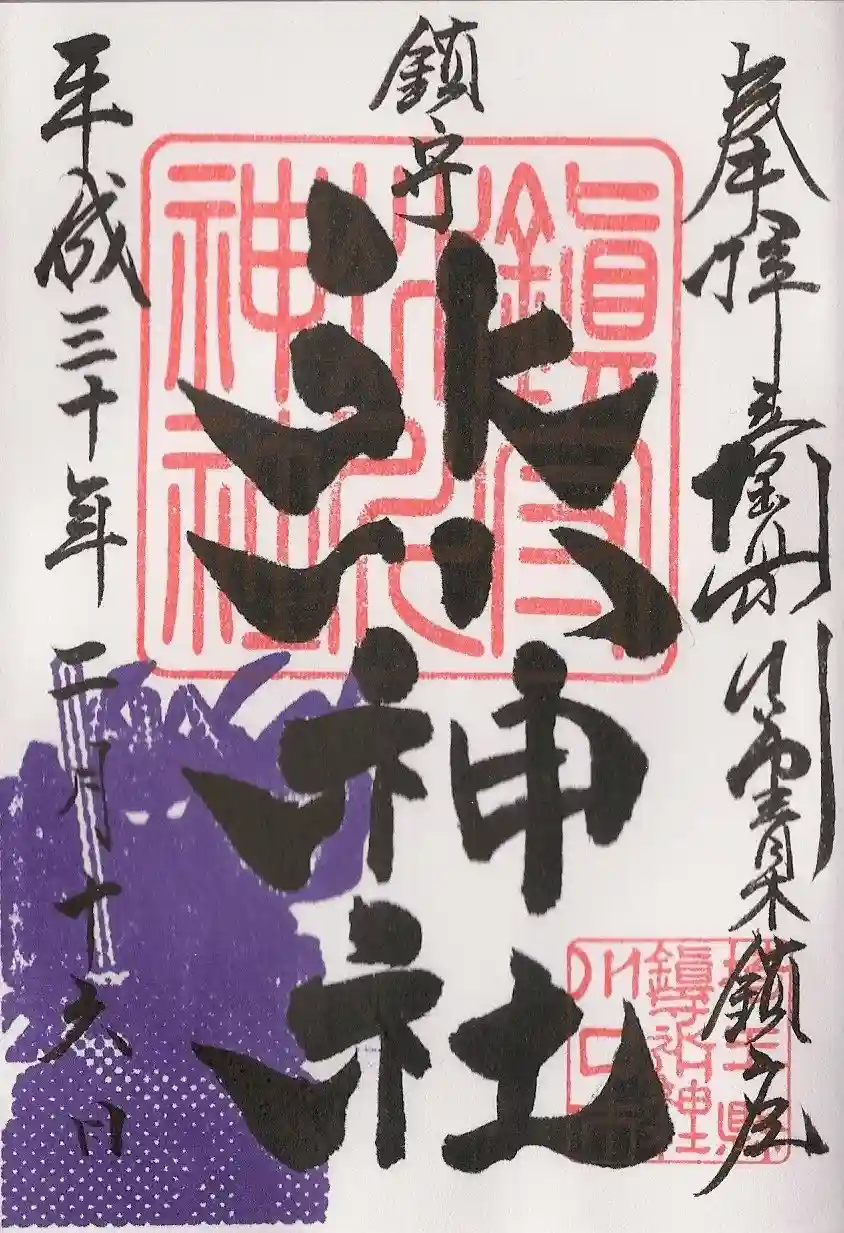 奉拝
青木鎮座
鎮守
氷川神社
平成三十年二月十六日
鎮守
氷川
神社
埼玉県
鎮守氷川神社
川口市